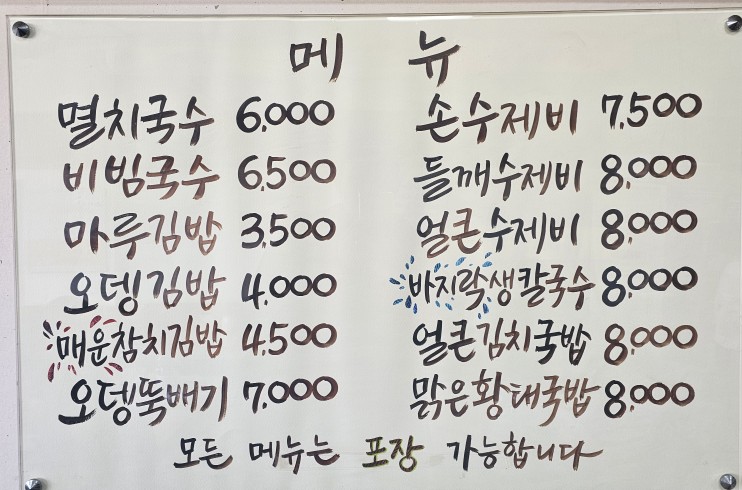 메뉴
멸치국수 6,000
비빔국수 6,500
마루김밥 3,500
오뎅김밥 4,000
매운참치김밥 4,500
오뎅뚝배기 7,000
손수제비 7,500
들깨수제비 8,000
얼큰수제비 8,000
바지락생칼국수 8,000
얼큰김치국밥 8,000
맑은황태국밥 8,000
모든 메뉴는 포장 가능합니다